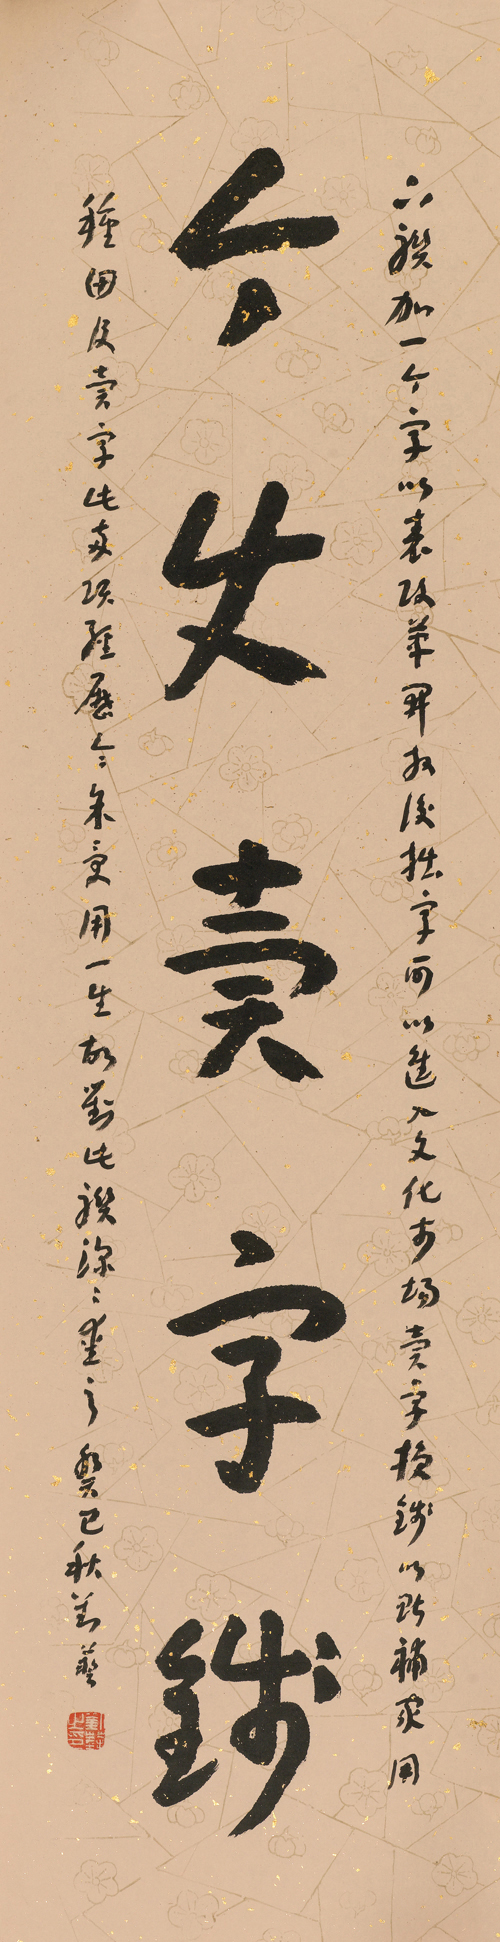 今收賣字錢
下聯加一今字以表改革開放後拙字可以進入文化市場賣字換錢以貼補家用
種田及賣字此兩項經歷令余受用一生故對此聯深深愛之 癸巳秋劉藝